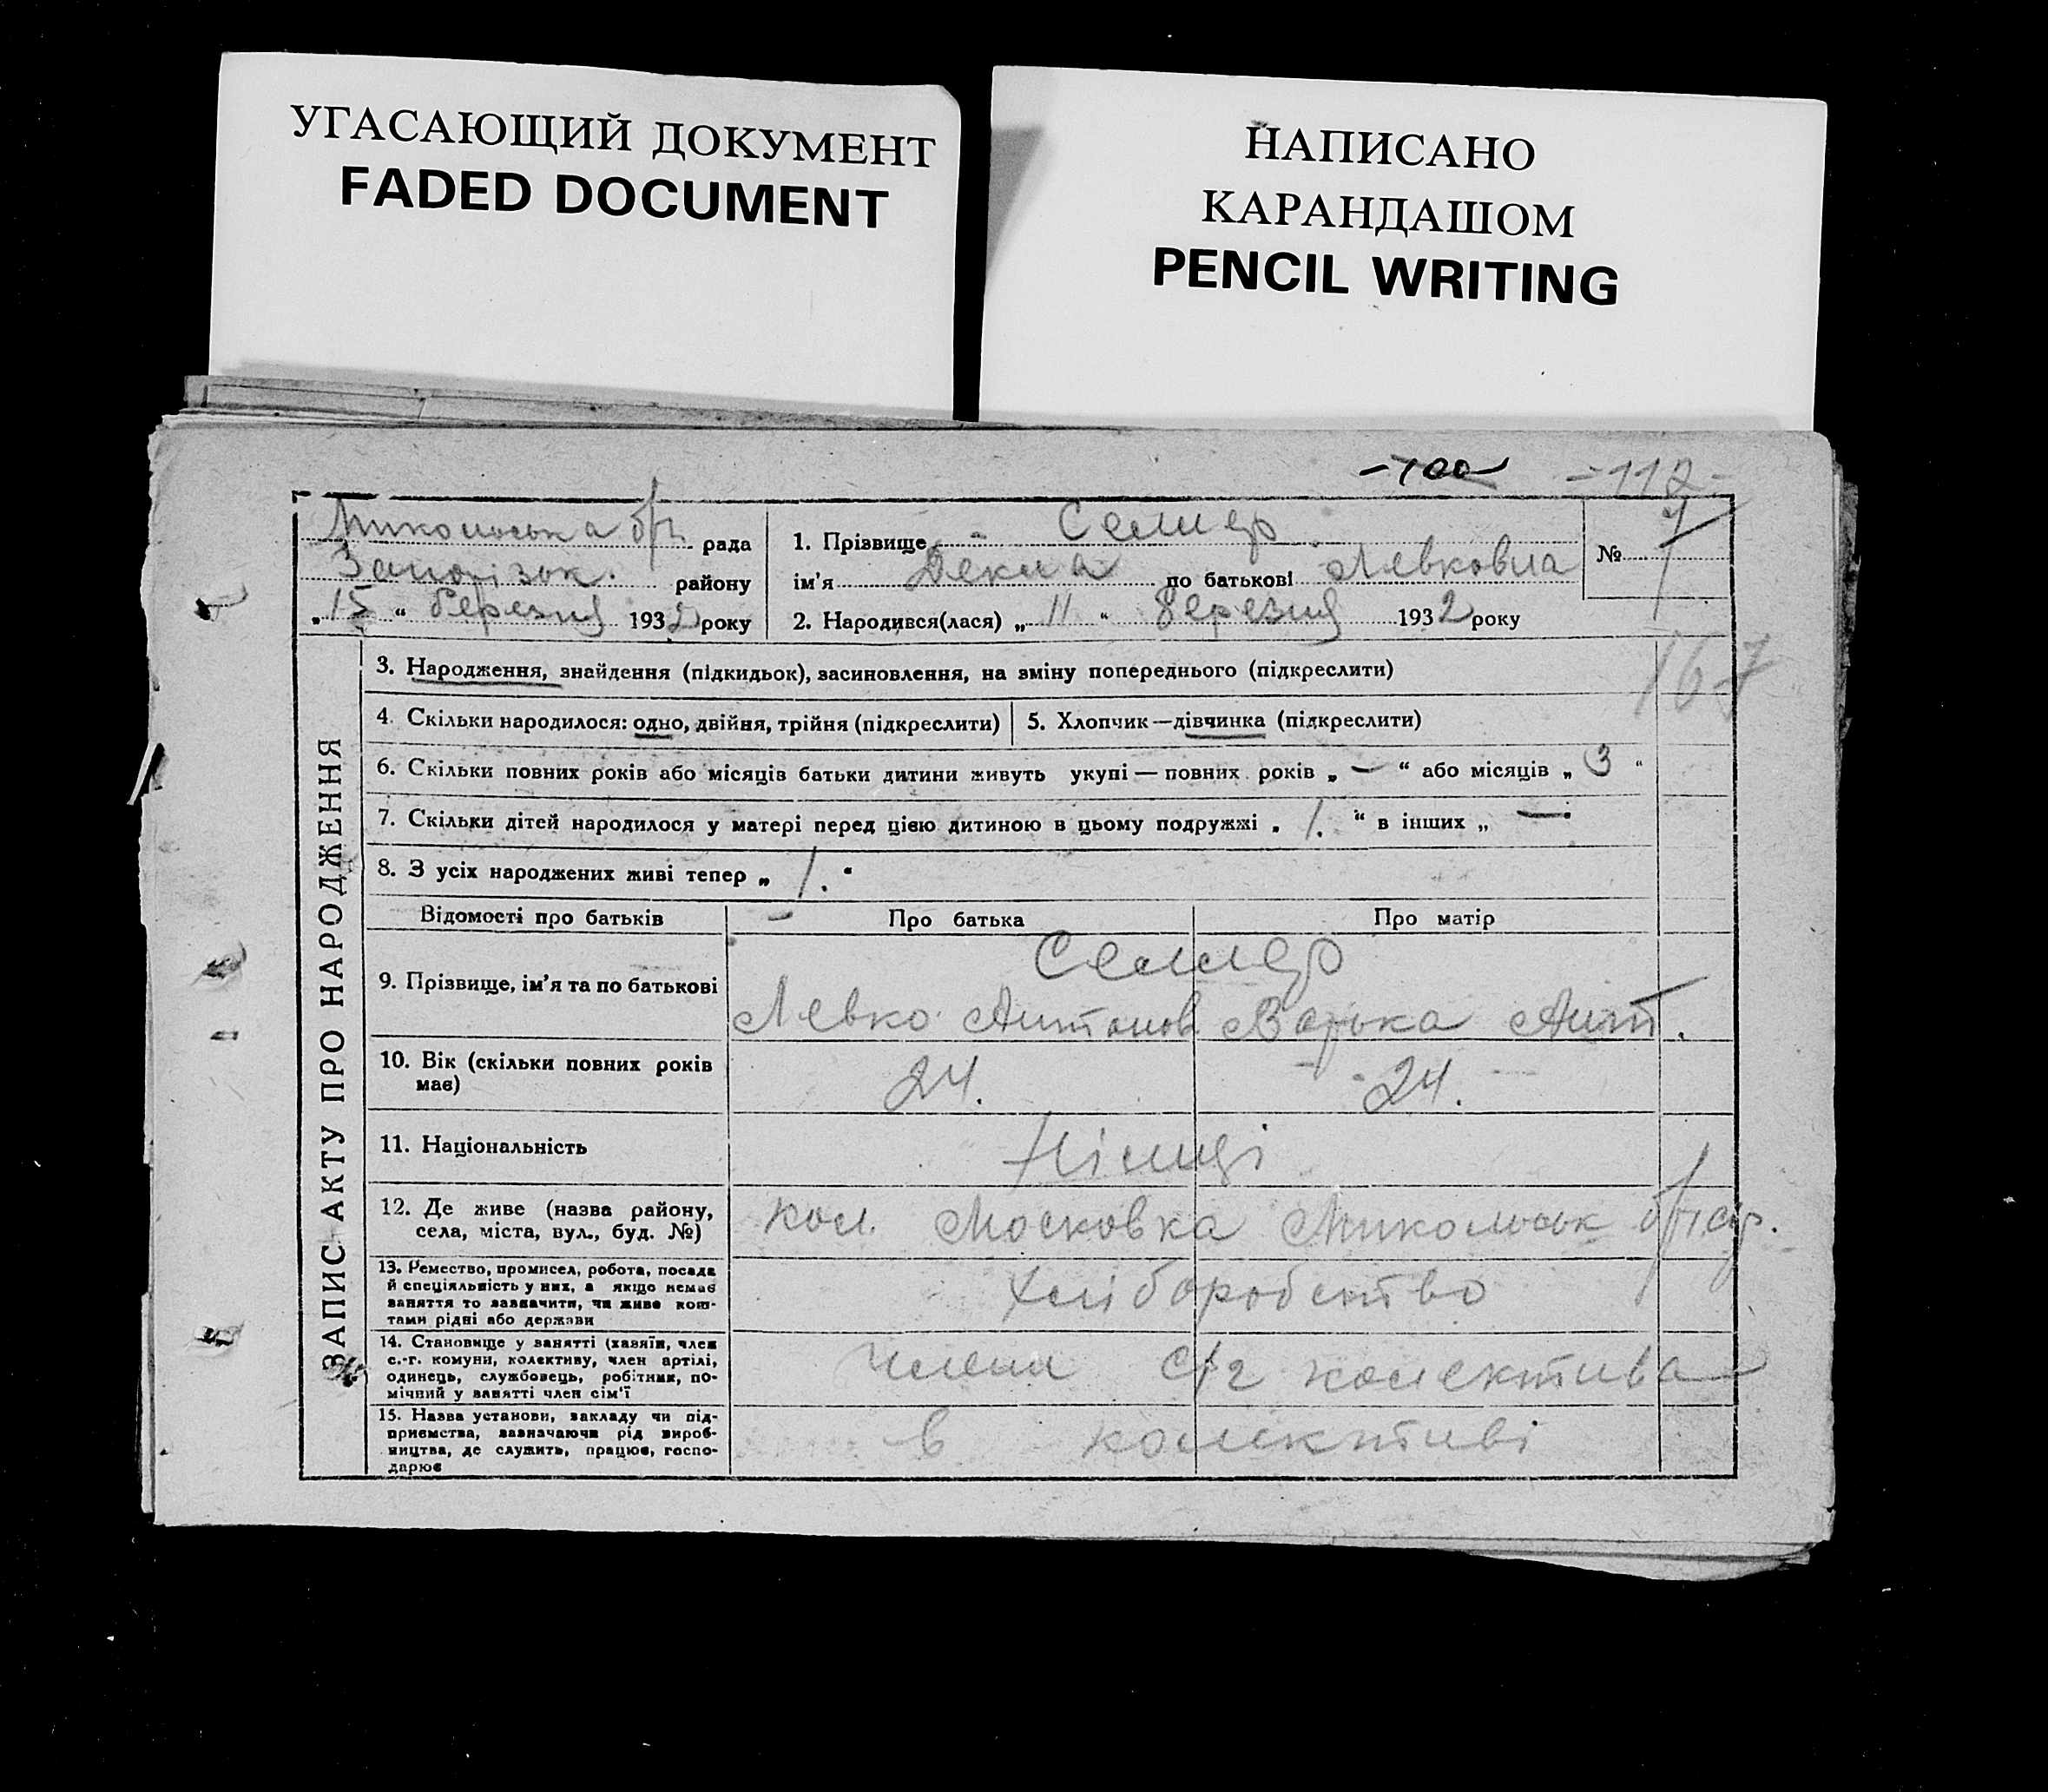 УГАСАЮЩИЙ ДОКУМЕНТ
FADED DOCUMENT
НАПИСАНО
КАРАНДАШОМ
PENCIL WRITING
-100 -112-
Микольська рада
Запорізьк. району
„15“ березня 1932 року
1. Прізвище
ім'я по батькові Левковна
2. Народився(лася) „11“ березня 1932 року
№ 7
167
ЗАПИС АКТУ ПРО НАРОДЖЕННЯ
3. Народження, знайдення (підкидьок), засиновлення, на зміну попереднього (підкреслити)
4. Скільки народилося: одно, двійня, трійня (підкреслити)
5. Хлопчик—дівчинка (підкреслити)
6. Скільки повних років або місяців батьки дитини живуть укупі — повних років „ — “ або місяців „ 3 “
7. Скільки дітей народилося у матері перед цією дитиною в цьому подружжі „ 1. “ в інших „ — “
8. З усіх народжених живі тепер „ 1. “
Відомості про батьків
Про батька
Про матір
9. Прізвище, ім'я та по батькові
Левко Антонов Варька Ант.
10. Вік (скільки повних років
має)
24. 24.
11. Національність
Німці
12. Де живе (назва району,
села, міста, вул., буд. №)
кол. Московка Микольськ
13. Ремество, промисел, робота, посада
й спеціяльність у них, а якщо немає
заняття то зазначити, чи живе кош-
тами рідні або держави
хліборобство
14. Становище у занятті (хазяїн, член
с.-г. комуни, колективу, член артілі,
одинець, службовець, робітник, по-
мічний у занятті член сім'ї
члени с/г колектива
15. Назва установи, закладу чи під-
приємства, зазначаючи рід вироб-
ництва, де служить, працює, госпо-
дарює
в колективі